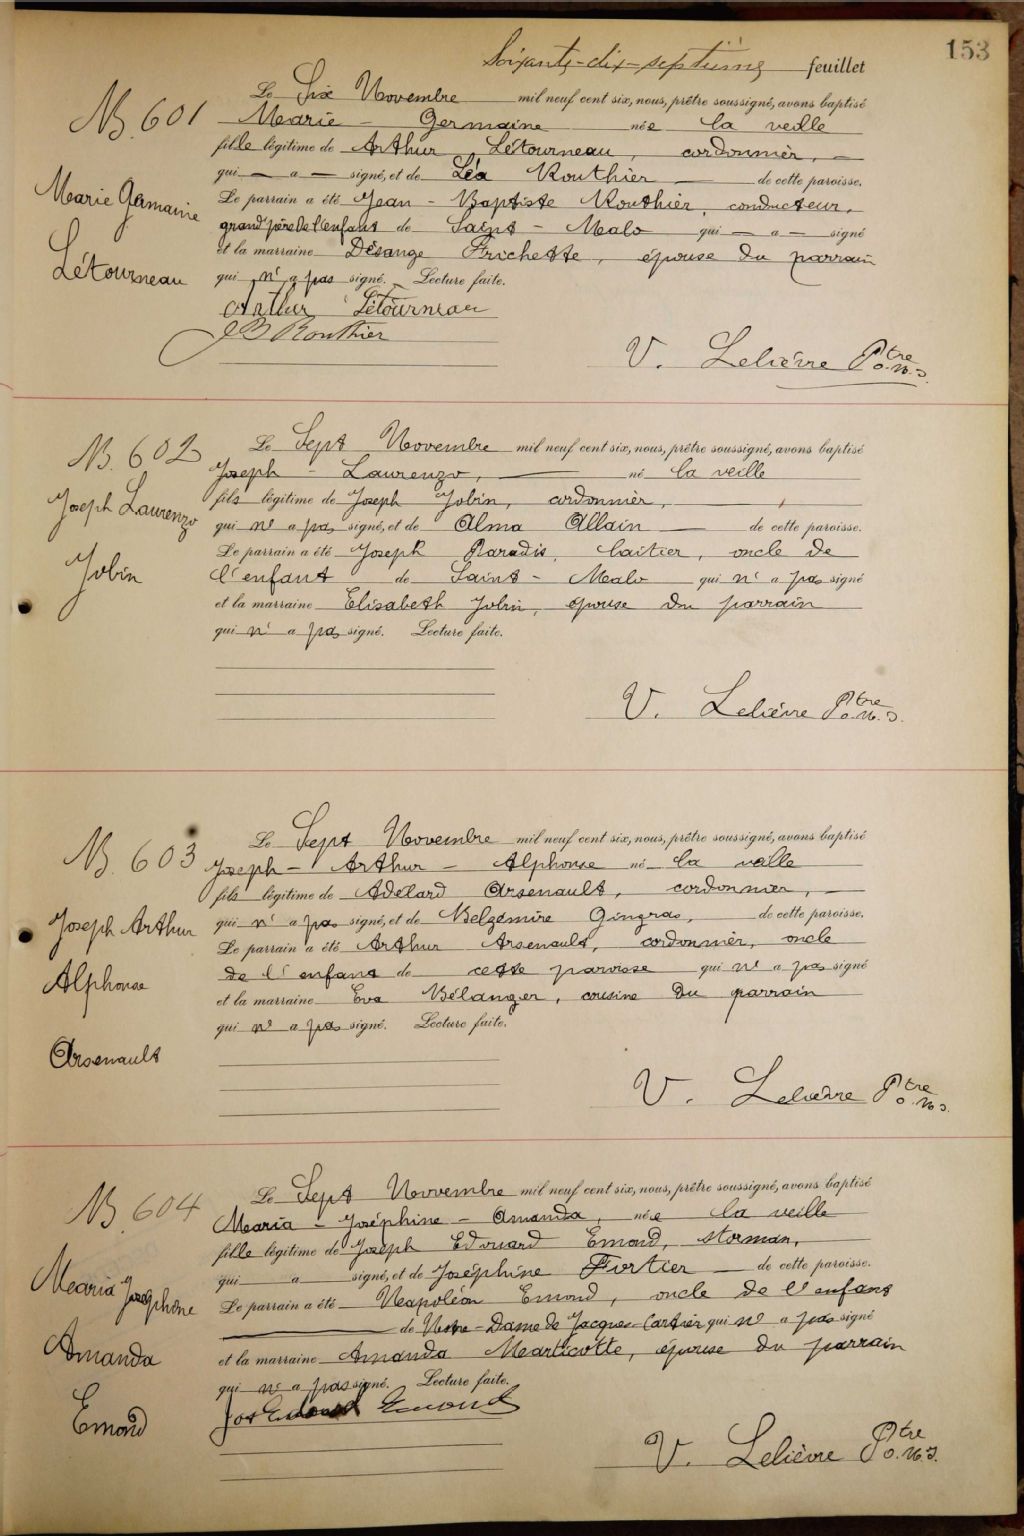 Soixante-dix-septième feuillet 153
B. 601
Le Six Novembre mil neuf cent six, nous, prêtre soussigné, avons baptisé
Marie - Germaine née la veille
fille légitime de Arthur Létourneau, cordonnier,
qui — a — signé, et de Léa Routhier — de cette paroisse.
Marie Germaine
Létourneau
Le parrain a été Jean - Baptiste Routhier, conducteur,
grand'père de l'enfant de Saint - Malo qui — a — signé
et la marraine Désange Frichette, épouse du parrain
qui n' a pas signé. Lecture faite.
Arthur Létourneau
J B Routhier
V. Lelièvre Ptre
O.M.I.
B. 602
Le Sept Novembre mil neuf cent six, nous, prêtre soussigné, avons baptisé
Joseph - Laurenzo, né la veille
fils légitime de Joseph Jobin, cordonnier,
qui n' a pas signé, et de Alma Allain — de cette paroisse.
Joseph Laurenzo
Jobin
Le parrain a été Joseph Paradis, laitier, oncle de
l'enfant de Saint - Malo qui n' a pas signé
et la marraine Elisabeth Jobin, épouse du parrain
qui n' a pas signé. Lecture faite.
V. Lelièvre Ptre
O.M.I.
B. 603
Le Sept Novembre mil neuf cent six, nous, prêtre soussigné, avons baptisé
Joseph - Arthur - Alphonse né la veille
fils légitime de Adélard Arsenault, cordonnier,
qui n' a pas signé, et de Belzémire Gingras, de cette paroisse.
Joseph Arthur
Alphonse
Arsenault
Le parrain a été Arthur Arsenault, cordonnier, oncle
de l'enfant de cette paroisse qui n' a pas signé
et la marraine Eva Bélanger, cousine du parrain
qui n' a pas signé. Lecture faite.
V. Lelièvre Ptre
O.M.I.
B. 604
Le Sept Novembre mil neuf cent six, nous, prêtre soussigné, avons baptisé
Maria - Joséphine - Amanda, née la veille
fille légitime de Joseph Edouard Emond, storman,
qui — a — signé, et de Joséphine Fortier — de cette paroisse.
Maria Joséphine
Amanda
Emond
Le parrain a été Napoléon Emond, oncle de l'enfant
de Notre-Dame de Jacques-Cartier qui n' a pas signé
et la marraine Amanda Marticotte, épouse du parrain
qui n' a pas signé. Lecture faite.
Jos Edouard Emond
V. Lelièvre Ptre
O.M.I.